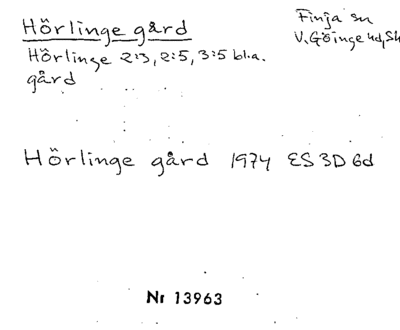 Hörlinge gård
Finja sn
V. Göinge hd, Sk
Hörlinge 2:3, 2:5, 3:5 bl.a.
gård
Hörlinge gård 1974 ES 3D 6d
Nr 13963